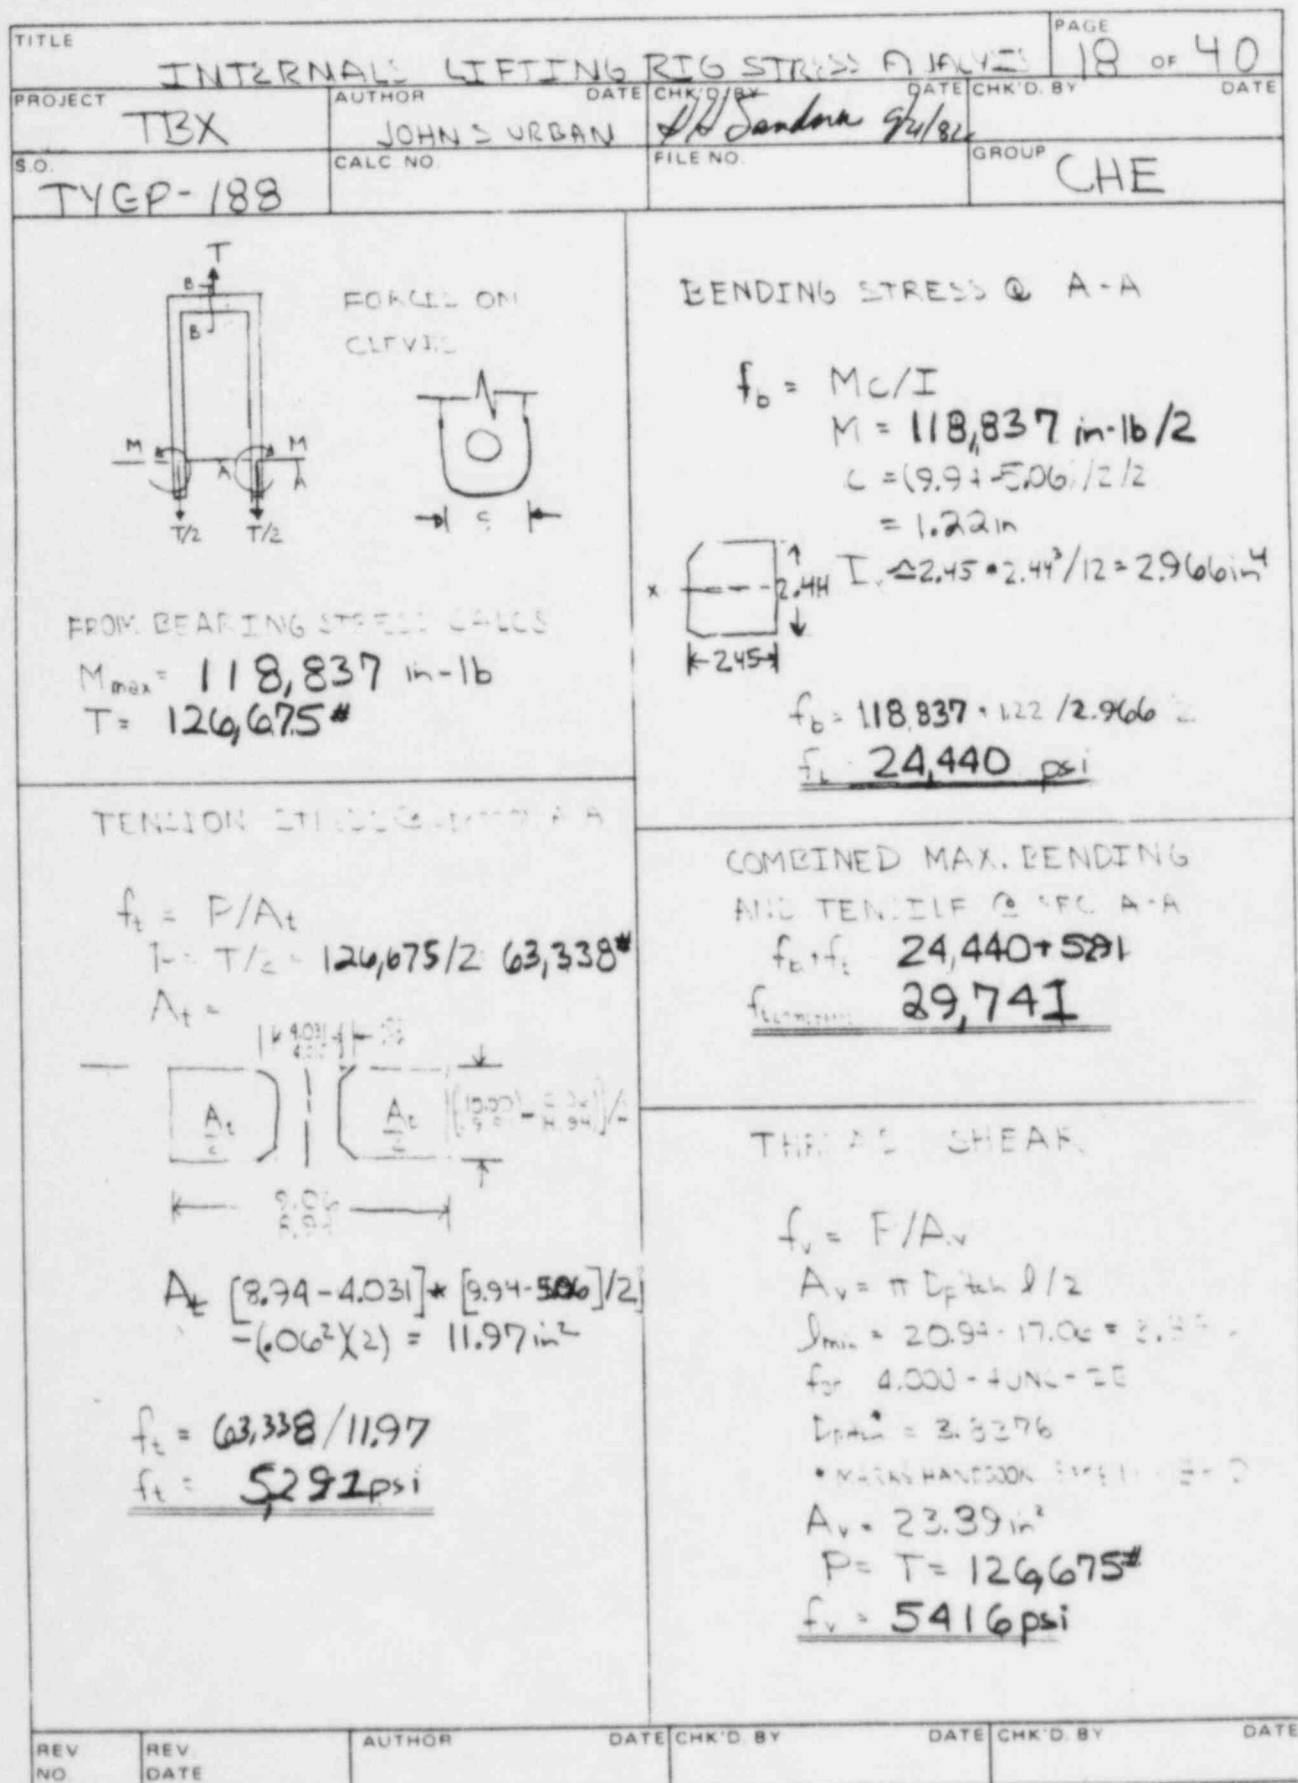 TITLE
INTERNALS LIFTING RIG STRESS ANALYSIS
PAGE
18 OF 40
PROJECT
TBX
AUTHOR DATE
JOHN S URBAN
CHK'D. BY DATE
9/21/82
CHK'D. BY DATE
S.O.
TYGP-188
CALC NO.
FILE NO.
GROUP
CHE
T
B
B
M
M
A
A
T/2 T/2
FORCES ON
CLEVIS
C
FROM BEARING STRESS CALCS
Mmax = 118,837 in-lb
T = 126,675#
TENSION STRESS @ A-A
ft = P/At
P = T/2 = 126,675/2 63,338#
At =
4.031
At/2 At/2
8.94
At [8.94-4.031]*[9.94-5.06]/2]
-(.06²)(2) = 11.97 in²
ft = 63,338/11.97
ft = 5,292 psi
BENDING STRESS @ A-A
fb = Mc/I
M = 118,837 in-lb/2
c = (9.94-5.06)/2/2
= 1.22in
x
2.44
I ≏2.45•2.44³/12=2.966in⁴
2.45
fb = 118,837•1.22/2.966
fb 24,440 psi
COMBINED MAX. BENDING
AND TENSILE @ SEC A-A
fb+ft 24,440+5291
29,741
THREAD SHEAR
fv = F/Av
Av = π Dpitch l/2
lmin = 20.94-17.06 =
for 4.000-4UNC-2B
Dpitch* = 3.8376
Av = 23.39in²
P= T= 126,675#
fv = 5416psi
REV NO.
REV. DATE
AUTHOR DATE
CHK'D. BY DATE
CHK'D. BY DATE